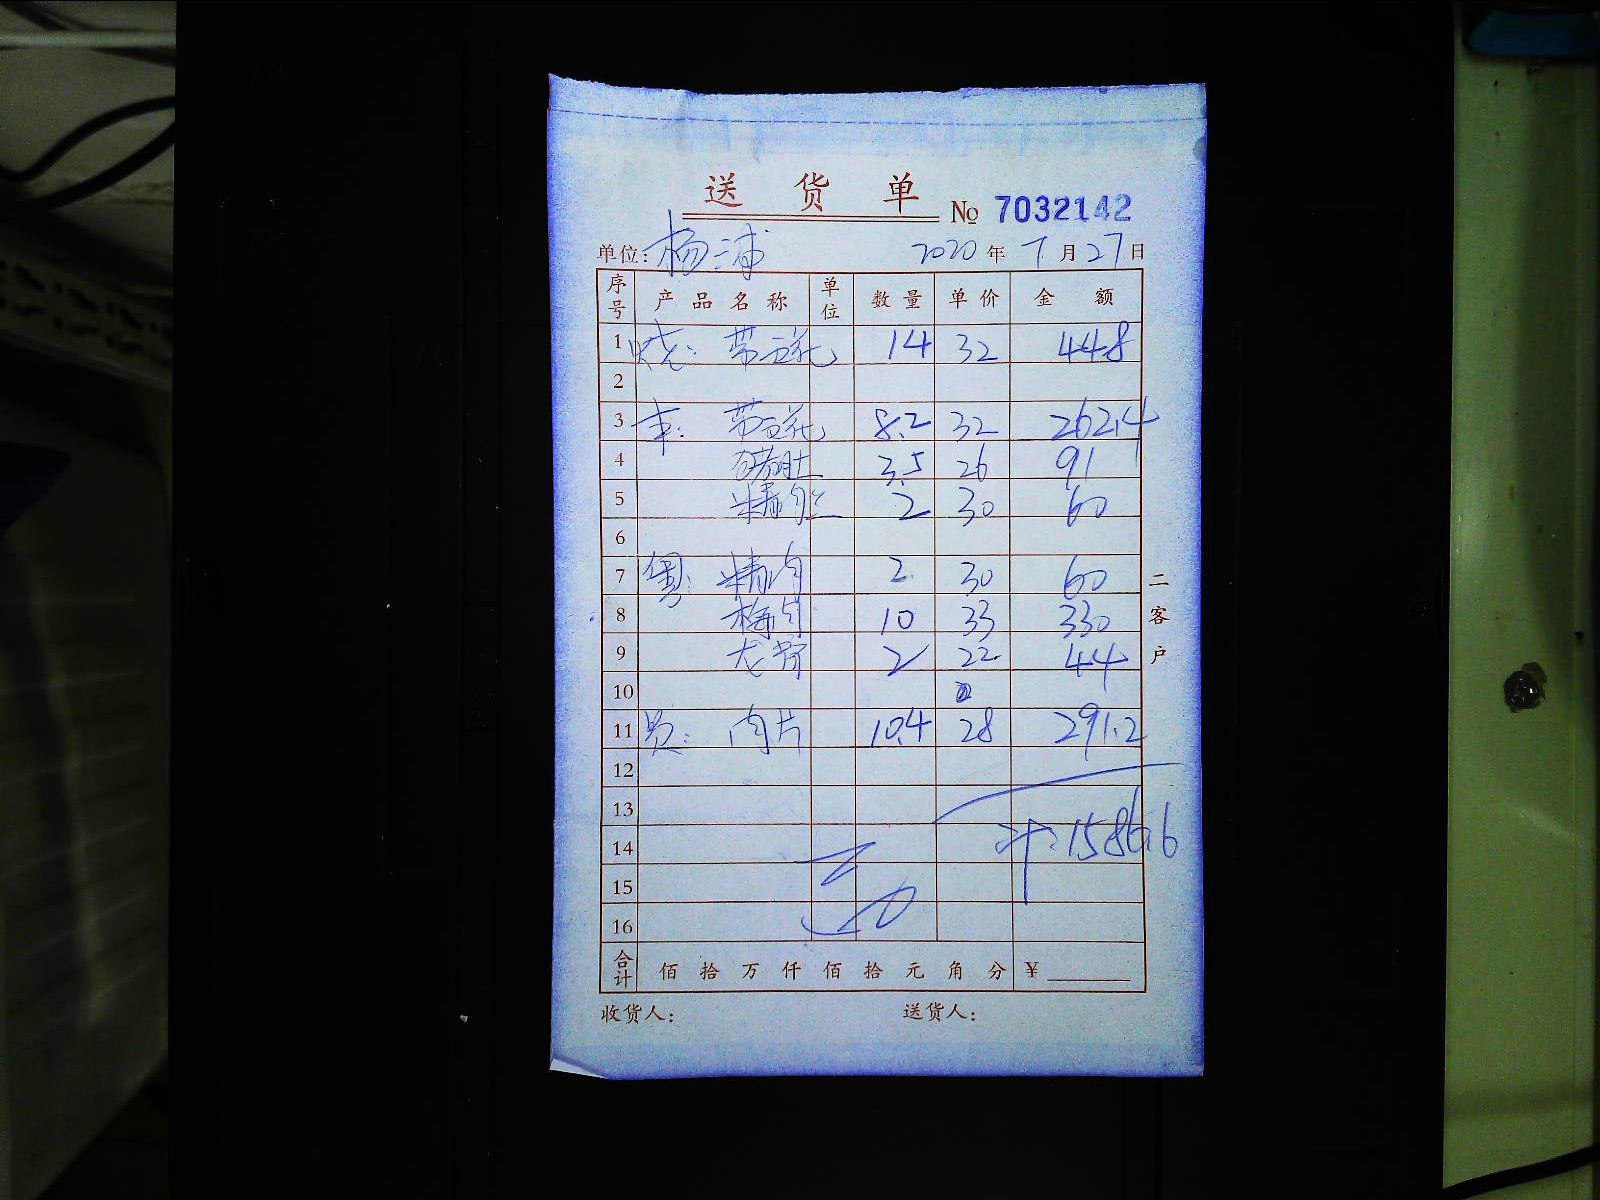 送货单 № 7032142
单位: 杨浦 2020年7月27日
序号 产品名称 单位 数量 单价 金额
1 烧: 带五花 14 32 448
2
3 本: 带五花 8.2 32 262.4
4 猪肚 3.5 26 91
5 精肉 2 30 60
6
7 粤: 精肉 2 30 60
8 梅肉 10 33 330
9 龙骨 2 22 44
10
11 员: 肉片 10.4 28 291.2
12
13
14 计: 1586.6
15
16
合计 佰拾万仟佰拾元角分 ¥
收货人: 送货人:
二客户